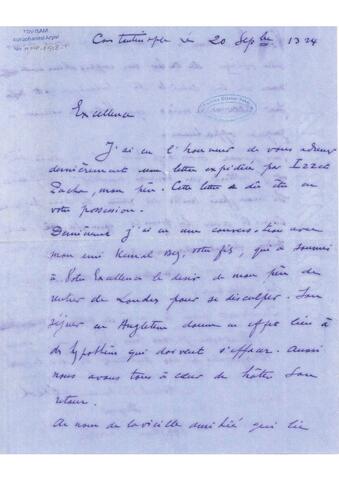 TDV İSAM
Constantinople le 20 Sepbre 1324
Excellence
J'ai eu l'honneur de vous adresser
dernièrement une lettre expédiée par Izzet
Pacha, mon père. Cette lettre a dû être en
votre possession.
j'ai eu une conversation avec
mon ami Kemal Bey, votre fils, qui a soumis
à Votre Excellence le désir de mon père de
rentrer de Londres pour se disculper. Son
séjour en Angleterre donne en effet lieu à
des hypothèses qui doivent s'effacer. Aussi
nous avons tous à cœur de hâter son
retour.
Au nom de la vieille amitié qui lie